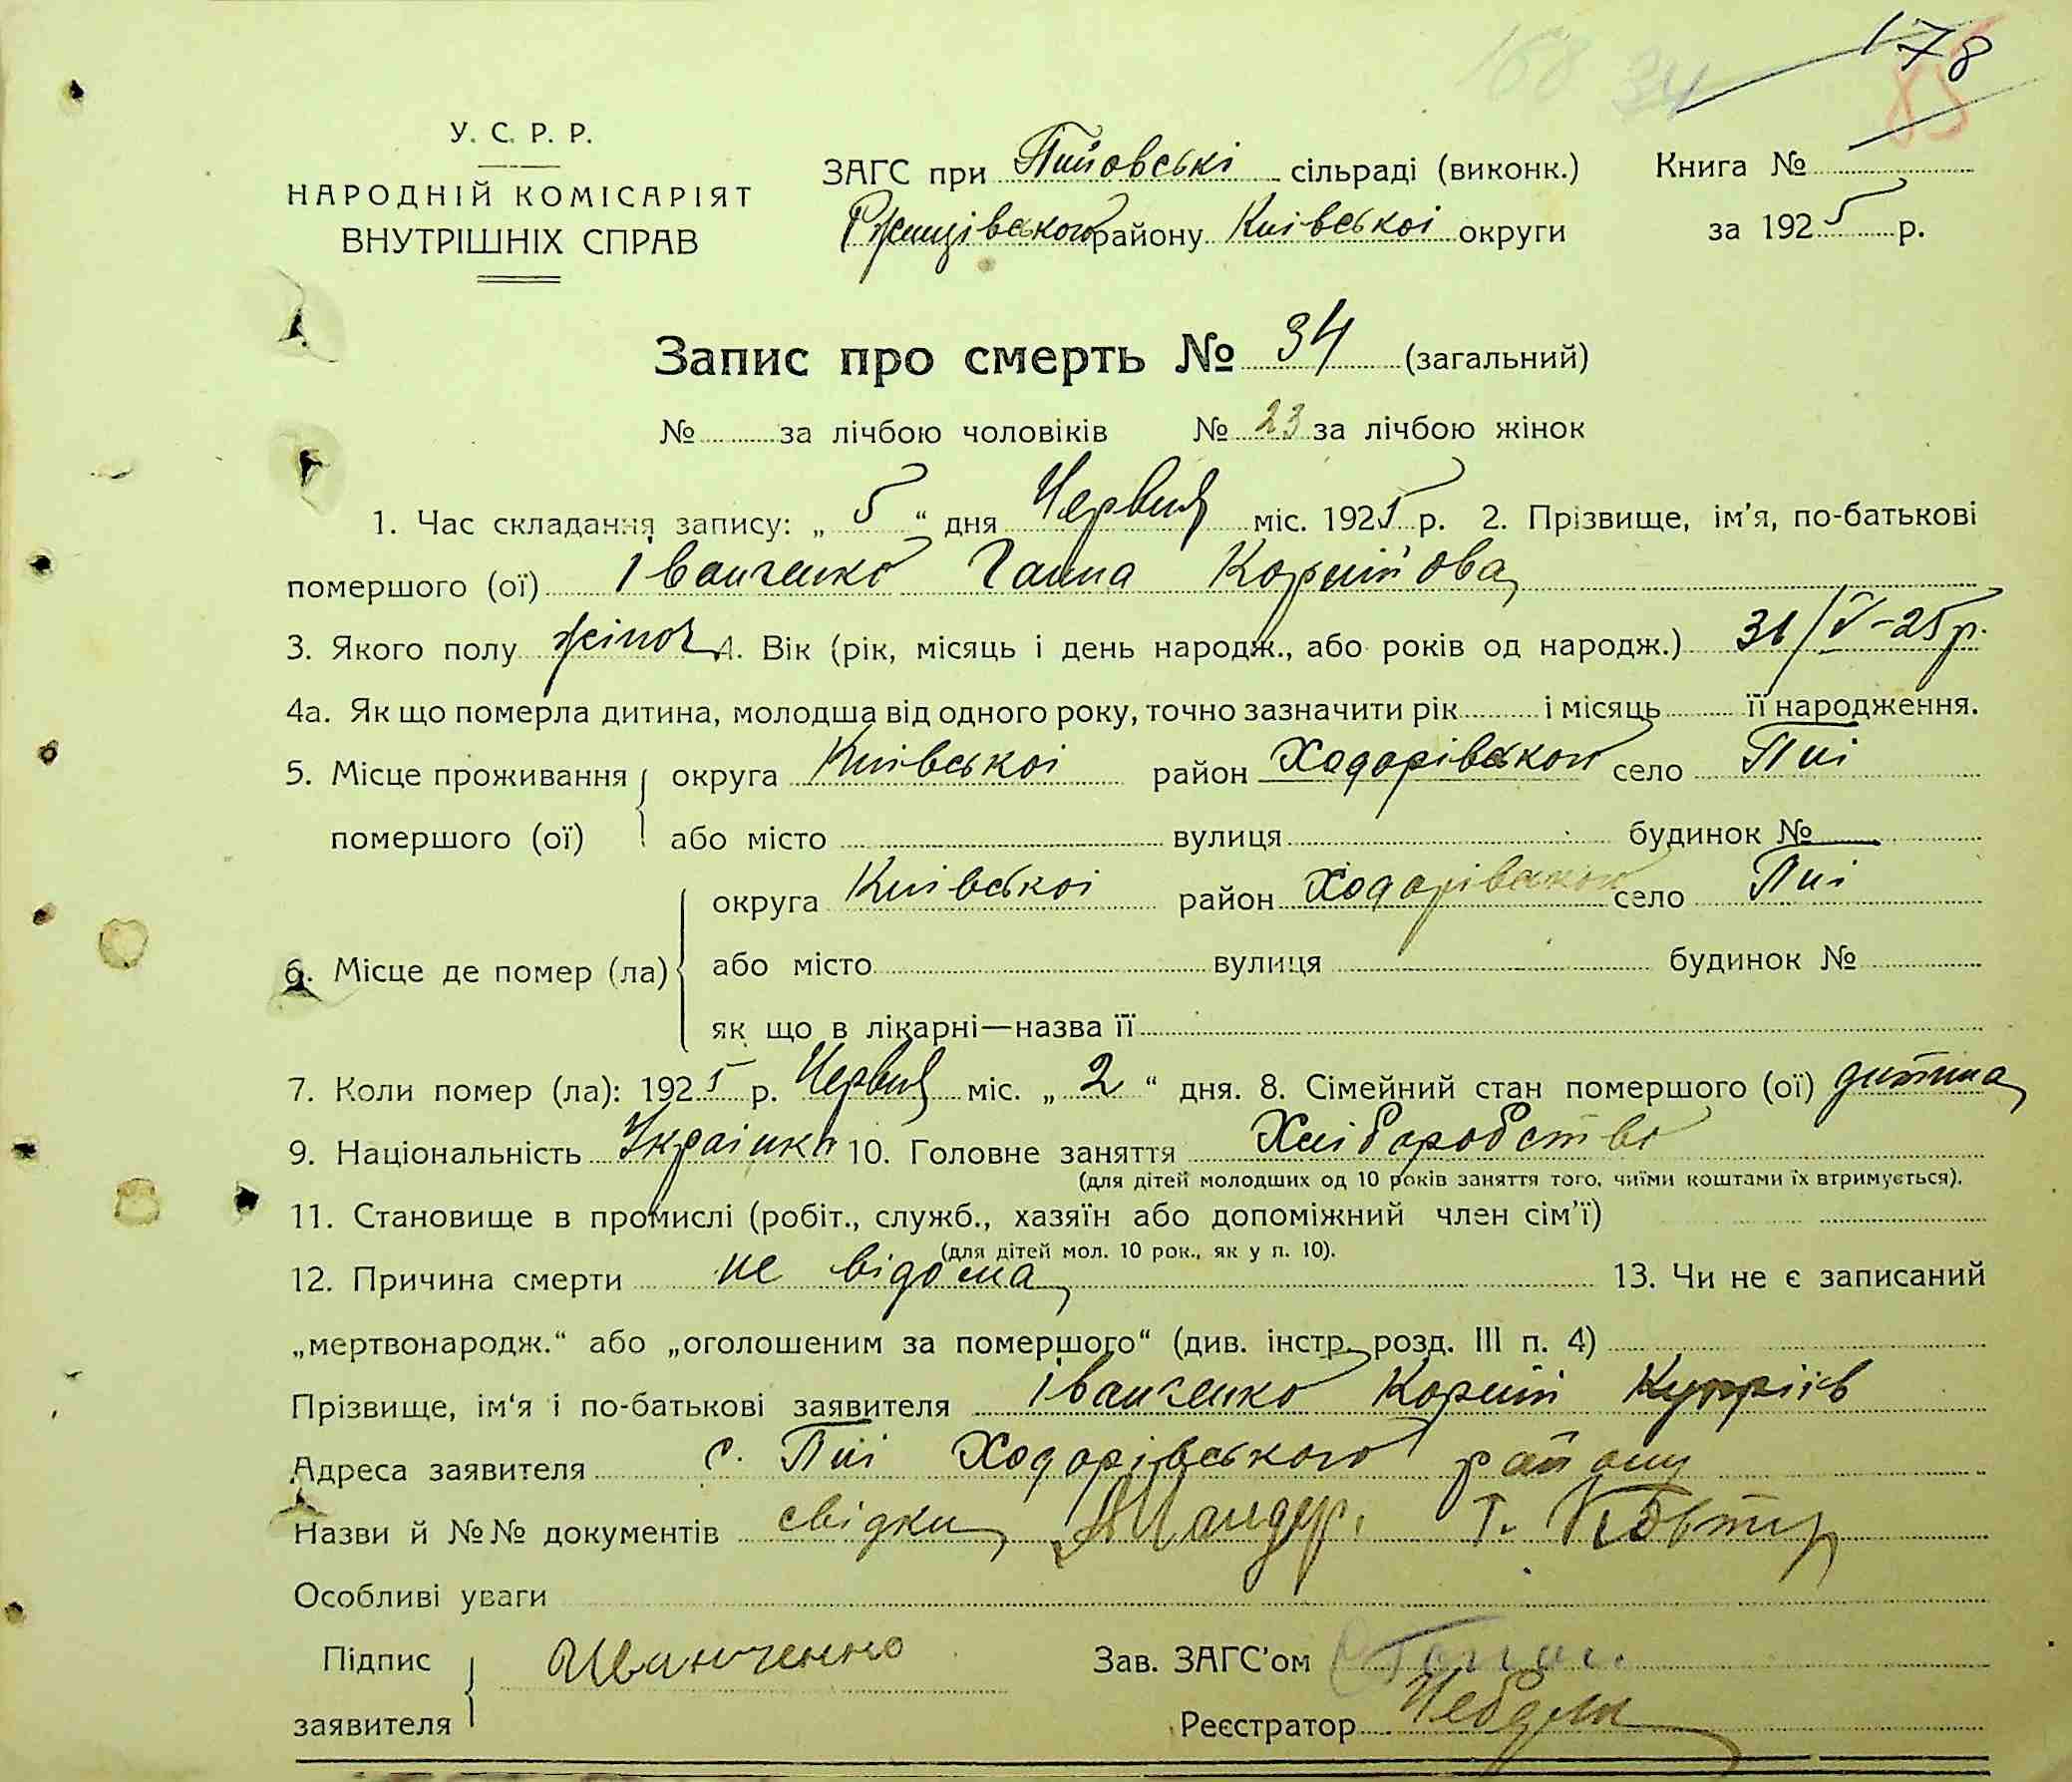 168 34 178
85
У. С. Р. Р.
НАРОДНІЙ КОМІСАРІЯТ
ВНУТРІШНІХ СПРАВ
ЗАГС при Пійовські сільраді (виконк.) Книга №
Ржищівського району Київської округи за 1925 р.
Запис про смерть № 34 (загальний)
№ за лічбою чоловіків № 23 за лічбою жінок
1. Час складання запису: „ 5 “ дня Червня міс. 1925 р. 2. Прізвище, ім’я, по-батькові
помершого (ої) Іванченко Ганна Корнійова
3. Якого полу жіноч 4. Вік (рік, місяць і день народж., або років од народж.) 31/V-25 р.
4а. Як що померла дитина, молодша від одного року, точно зазначити рік і місяць її народження.
5. Місце проживання округа Київської район Ходорівського село Пії
помершого (ої) або місто вулиця будинок №
округа Київської район Ходорівського село Пії
6. Місце де помер (ла) або місто вулиця будинок №
як що в лікарні—назва її
7. Коли помер (ла): 1925 р. Червня міс. „ 2 “ дня. 8. Сімейний стан помершого (ої) дитина
9. Національність Українка 10. Головне заняття Хліборобство
(для дітей молодших од 10 років заняття того, чиїми коштами їх втримується).
11. Становище в промислі (робіт., служб., хазяїн або допоміжний член сім’ї)
(для дітей мол. 10 рок., як у п. 10).
12. Причина смерти не відома 13. Чи не є записаний
„мертвонародж.“ або „оголошеним за помершого“ (див. інстр. розд. III п. 4)
Прізвище, ім‘я і по-батькові заявителя Іванченко Корній Купріїв
Адреса заявителя с. Пії Ходорівського району
Назви й №№ документів свідки Т.
Особливі уваги
Підпис Иванченко Зав. ЗАГС’ом
заявителя Реєстратор